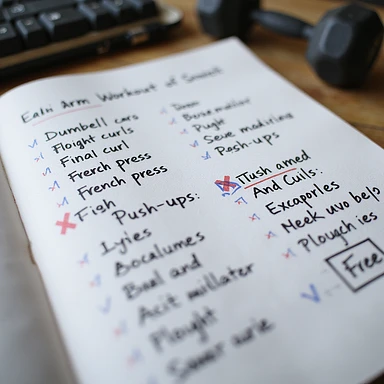 Eahi Arm Workout of Sweat
Dumbell cars
Floight curls
Final curl
Frerch press
French press
Fish
Push-ups:
Lyies
Bocalumes
Baal and
Acit millater
Plought
Pught
Seve madirine
Posh-ups
Tush amed
And Cuils:
Excaporles
Meek uvo belo
Plough ies
Free